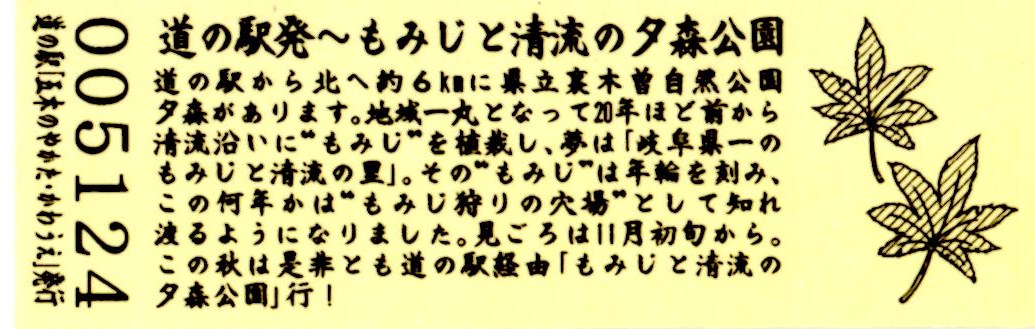 道の駅発～もみじと清流の夕森公園
道の駅から北へ約6kmに県立裏木曽自然公園
夕森があります。地域一丸となって20年ほど前から
清流沿いに“もみじ”を植栽し、夢は「岐阜県一の
もみじと清流の里」。その“もみじ”は年輪を刻み、
この何年かは“もみじ狩りの穴場”として知れ
渡るようになりました。見ごろは11月初旬から。
この秋は是非とも道の駅経由「もみじと清流の
夕森公園」行！
005124
道の駅「五木のやかた・かわうえ」発行